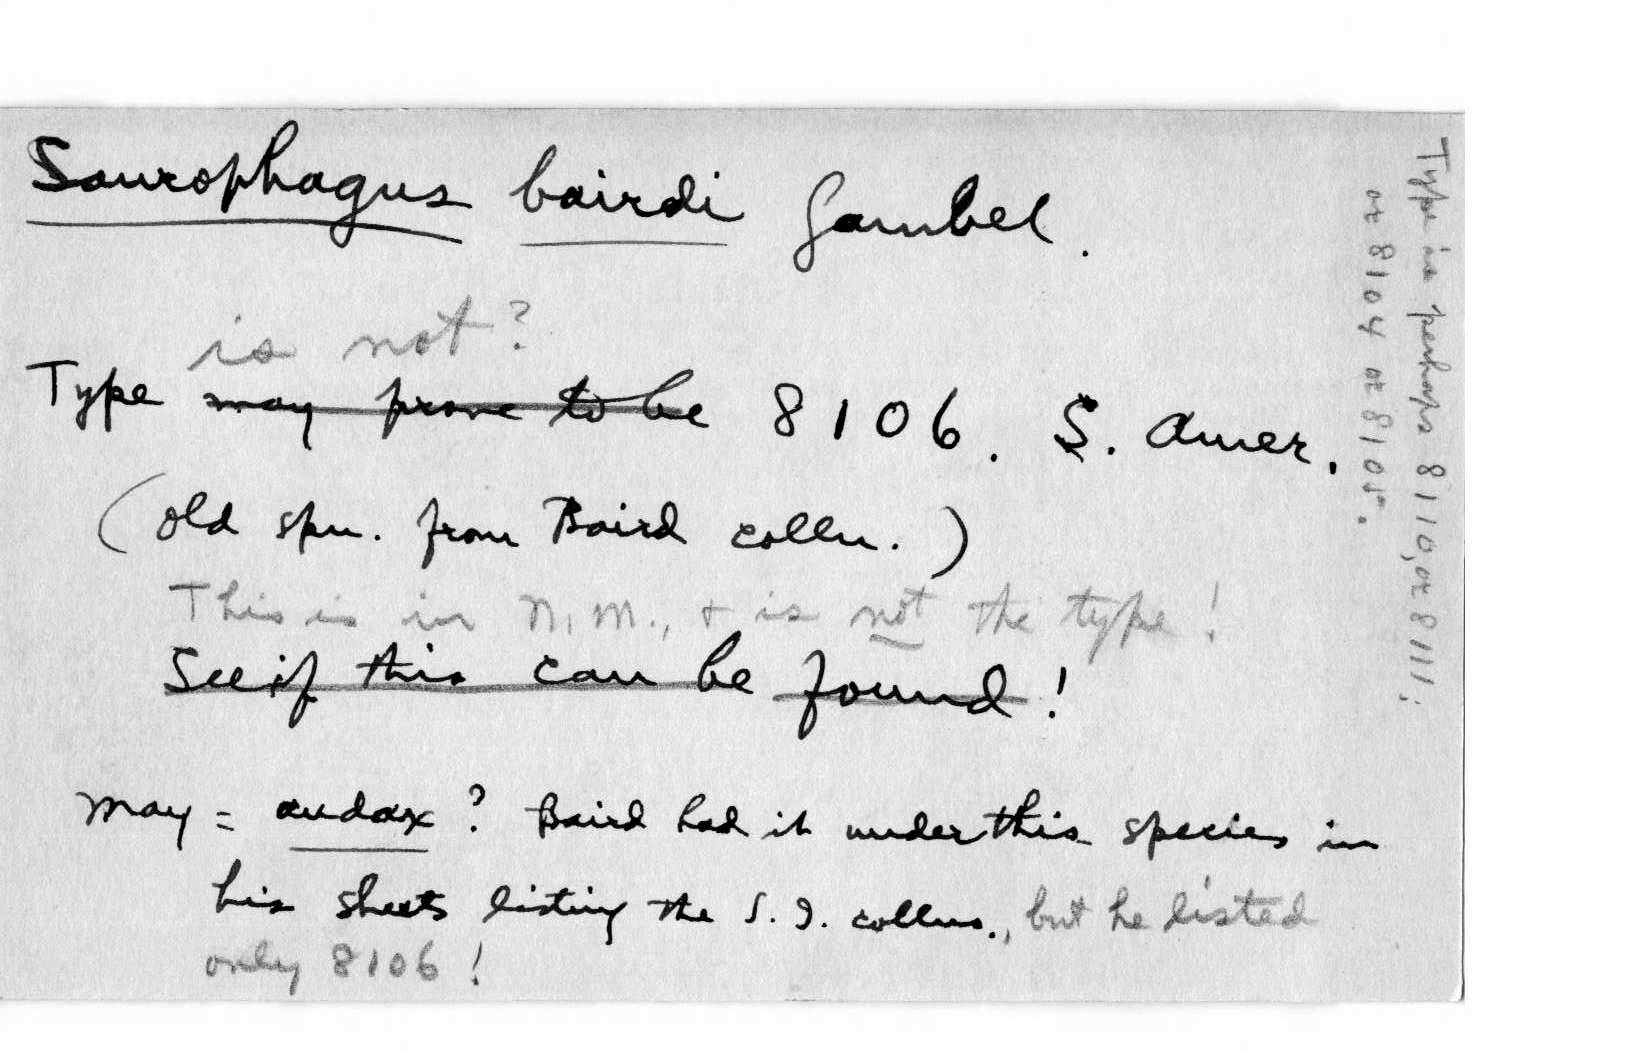 Saurophagus bairdi Gambel.
is not?
Type may prove to be 8106. S. Amer.
(old spn. from Baird colln.)
This is in N.M., + is not the type!
See if this can be found!
May = audax? Baird had it under this species in
his sheets listing the S.I. collns., but he listed
only 8106!
Type is perhaps 8110, or 8111;
or 8104 or 8105.